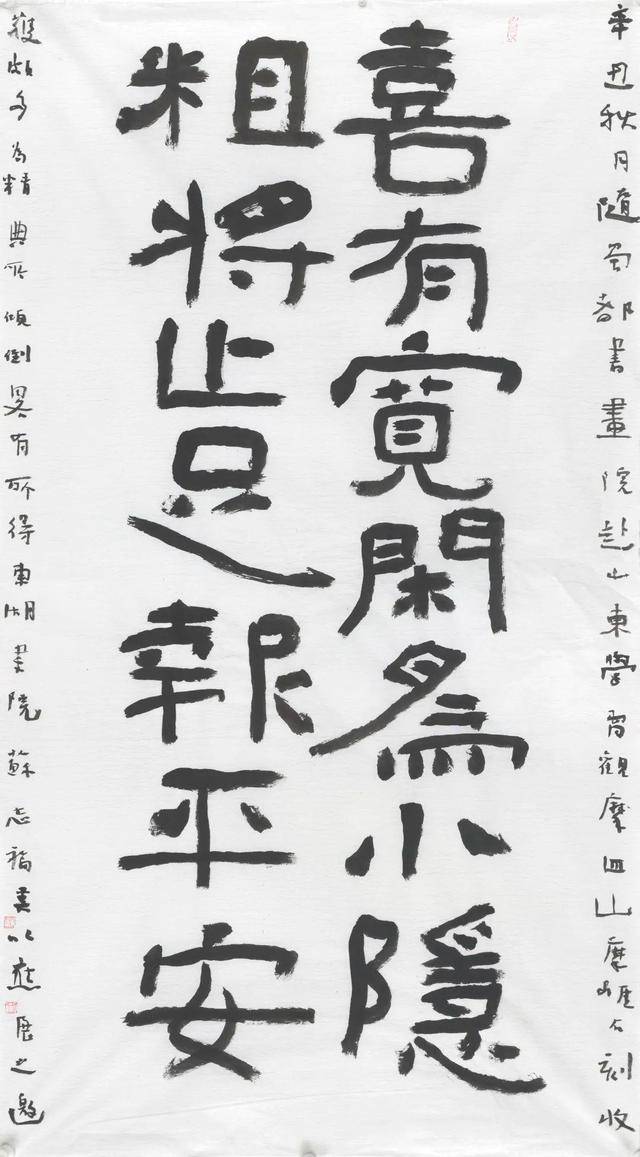 辛丑秋月隨蜀都書畫院赴山東學習觀摩四山摩崖石刻收
喜有寬閑為小隱
粗將止足報平安
獲頗多為精典所傾倒畧有所得東湖書院蘇志福書以應展之邀